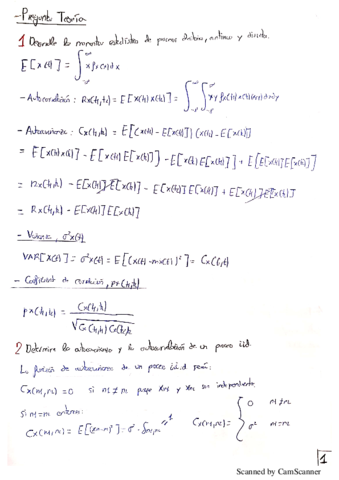 - Pregunta Teoría
1 Desarrolle los momentos estadísticos de proceso
E[x(t)] = ∫ x fx(x) dx
- Autocorrelación: Rx(t₁,t₂) = E[x(t₁) x(t₂)] = ∫∫ xy
- Autocovarianza: Cx(t₁,t₂) = E[(x(t₁) - E[x(t₁)]) (x(t₂) - E[x(t₂)])]
= E[x(t₁)x(t₂)] - E[x(t₁) E[x(t₂)]] - E[x(t₂) E[x(t₁)]] + E[E[x(t₁)] E[x(t₂)]]
= Rx(t₁,t₂) - E[x(t₁)] E[x(t₂)] - E[x(t₁)] E[x(t₂)] + E[x(t₁)] E[x(t₂)]
= Rx(t₁,t₂) - E[x(t₁)] E[x(t₂)]
- Varianza, σ²x(t)
VAR[x(t)] = σ²x(t) = E[(x(t) - mx(t))²] = Cx(t,t)
- Coeficiente de correlación,
ρx(t₁,t₂) = Cx(t₁,t₂) / √
2 Determine la autocovarianza y la autocorrelación de un proceso iid.
La función de autocovarianza de un proceso i.i.d.
Cx(m,n) = 0 si m ≠ n xm y xn son independientes.
si m = n entonces:
Cx(m,n) = σ² δm,n
Cx(m,n) = { 0 m ≠ n
σ² m = n
1
Scanned by CamScanner